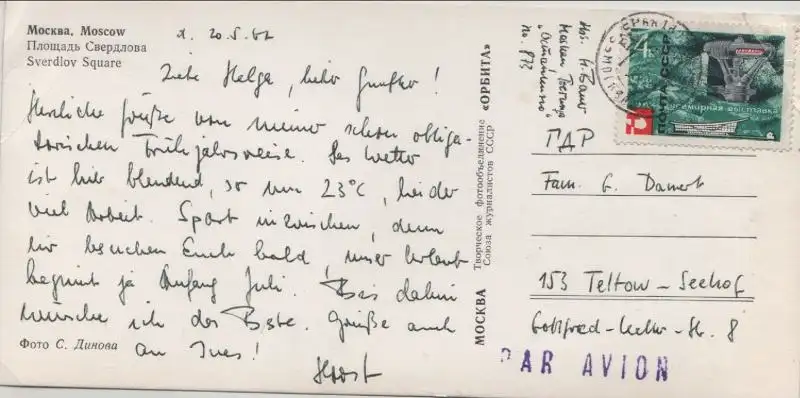 Москва, Moscow
Площадь Свердлова
Sverdlov Square
d. 20.5.67
Liebe Helga, lieber Gunther!
Herzliche Grüße von meiner schon obliga-
torischen Frühjahrsreise. Das Wetter
ist hier blendend, so um 23°C, leider
viel Arbeit. Spart inzwischen, denn
wir besuchen Euch bald, unser Urlaub
beginnt ja Anfang Juli. Bis dahin
wünsche ich das Beste. Grüße auch
an Ines!
Horst
Фото С. Динова
МОСКВА Творческое фотообъединение «ОРБИТА»
Союза журналистов СССР
Abs. H.
Moskau
"Останкино"
No. 873
4к
ПОЧТА СССР
Всемирная выставка
ГДР
Fam. G. Damert
153 Teltow-Seehof
Str. 8
PAR AVION